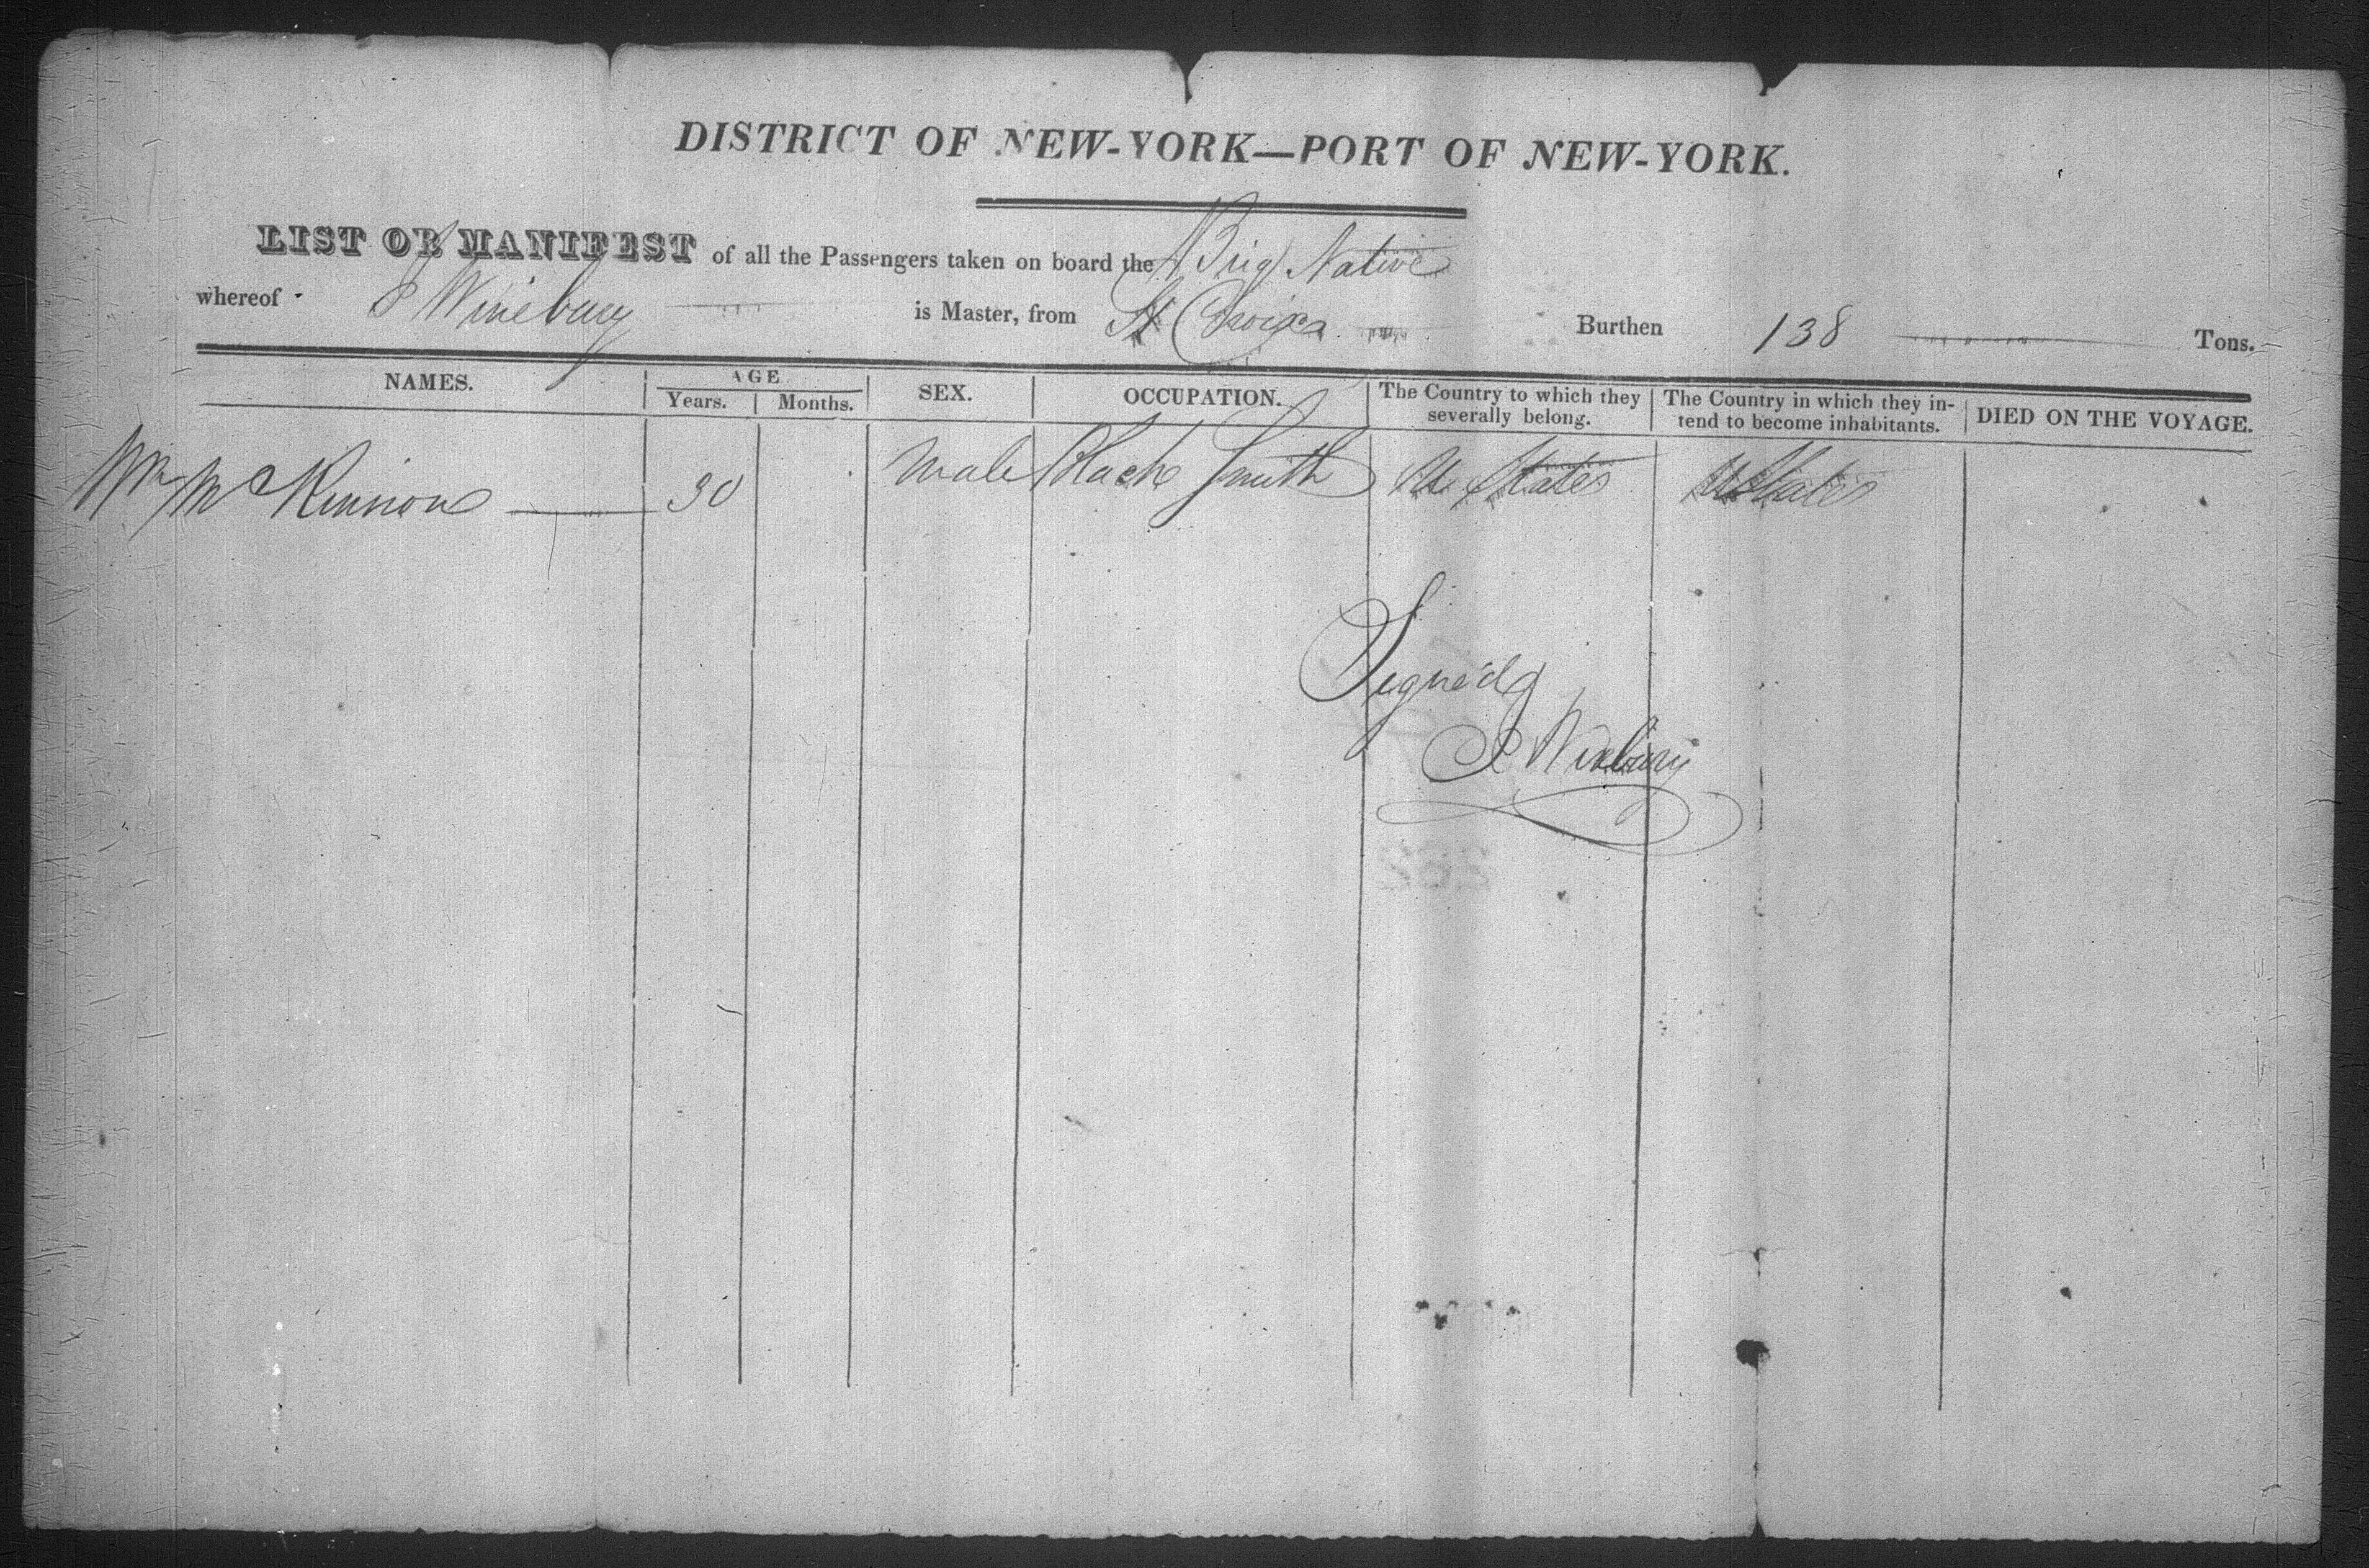 DISTRICT OF NEW-YORK—PORT OF NEW-YORK.
LIST OR MANIFEST of all the Passengers taken on board the Brig Native
whereof J Winebury is Master, from St Croixa Burthen 138 Tons.
NAMES. AGE Years. Months. SEX. OCCUPATION. The Country to which they severally belong. The Country in which they intend to become inhabitants. DIED ON THE VOYAGE.
Wm McKinnon 30 male Black Smith U States U States
Signed